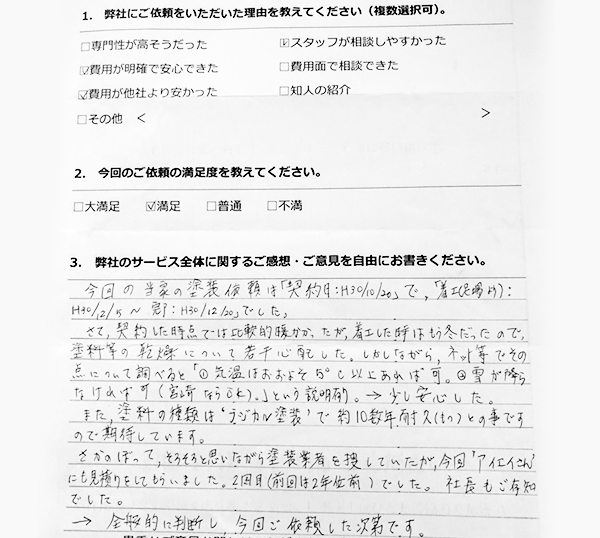 1. 弊社にご依頼をいただいた理由を教えてください（複数選択可）。
□専門性が高そうだった ☑スタッフが相談しやすかった
☑費用が明確で安心できた □費用面で相談できた
☑費用が他社より安かった □知人の紹介
□その他 < >
2. 今回のご依頼の満足度を教えてください。
□大満足 ☑満足 □普通 □不満
3. 弊社のサービス全体に関するご感想・ご意見を自由にお書きください。
今回の当家の塗装依頼は「契約日:H30/10/20」で、「着工(足場より):
H30/12/5～完了:H30/12/20」でした。
さて、契約した時点では比較的暖かかったが、着工した時はもう冬だったので、
塗料等の乾燥について若干心配した。しかしながら、ネット等でその
点について調べると「①気温はおおよそ5℃以上あれば可。②雪が降ら
なければ可(宮崎ならOK)。」という説明有。→少し安心した。
また、塗料の種類は"ラジカル塗装"で約10数年耐久(もつ)との事です
ので期待しています。
さかのぼって、そろそろと思いながら塗装業者を捜していたが、今回"アイエイさん"
にも見積りをしてもらいました。2回目(前回は2年位前)でした。社長もご存知
でした。
→ 全般的に判断し、今回ご依頼した次第です。